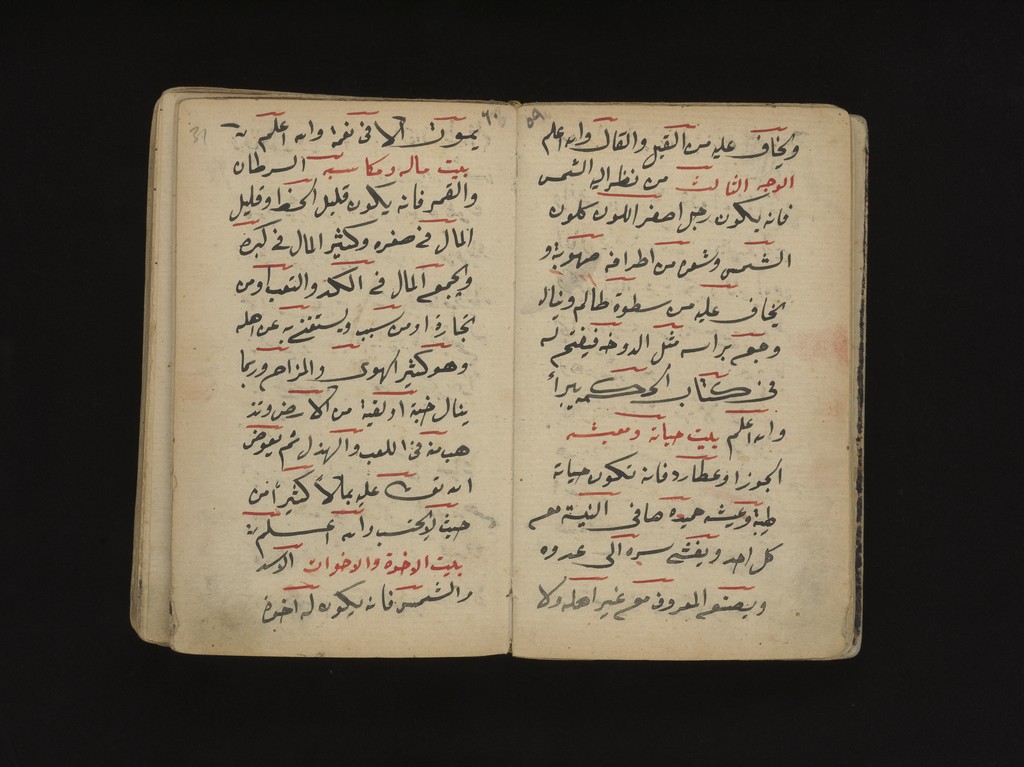 ٥٩
ويخاف عليه من القيل والقال والله اعلم
الوجه الثالث من نظر اليه الشمس
فانه يكون رجل اصفر اللون كلون
الشمس وشعره من اطرافه صهوبة و
يخاف عليه من سطوة ظالم وينال
وجع براسه مثل الدوخه فيفتح له
في كتاب الحرز يبرأ
والله اعلم بيت حياته ومعيشه
الجوزا وعطارد فانه تكون حياته
طيبة وعيشه حميده صافى النية مع
كل احد ويفشى سره الى عدوه
ويصنع المعروف مع غير اهله ولا
٦٠
31
يموت الا فى نعمة والله اعلم
بيت ماله ومكاسبه السرطان
والقمر فانه يكون قليل الحظ وقليل
المال فى صغره وكثير المال فى كبره
ويجمع المال فى الكد والتعب اومن
تجارة اومن سبب ويستغنى به عن اهله
وهو كثير الهوى والمزاح وربما
ينال خبية او لقية من الارض وتذ
هب منه فى اللعب والهزل ثم يعوض
الله تعالى عليه بمالاً كثيراً من
حيث لا يحتسب والله اعلم
بيت الاخوة والاخوات الاسد
والشمس فانه يكون له اخوة